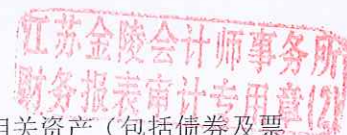 江苏金陵会计师事务所
财务报表审计专用章(2)
相关资产（包括债券及票